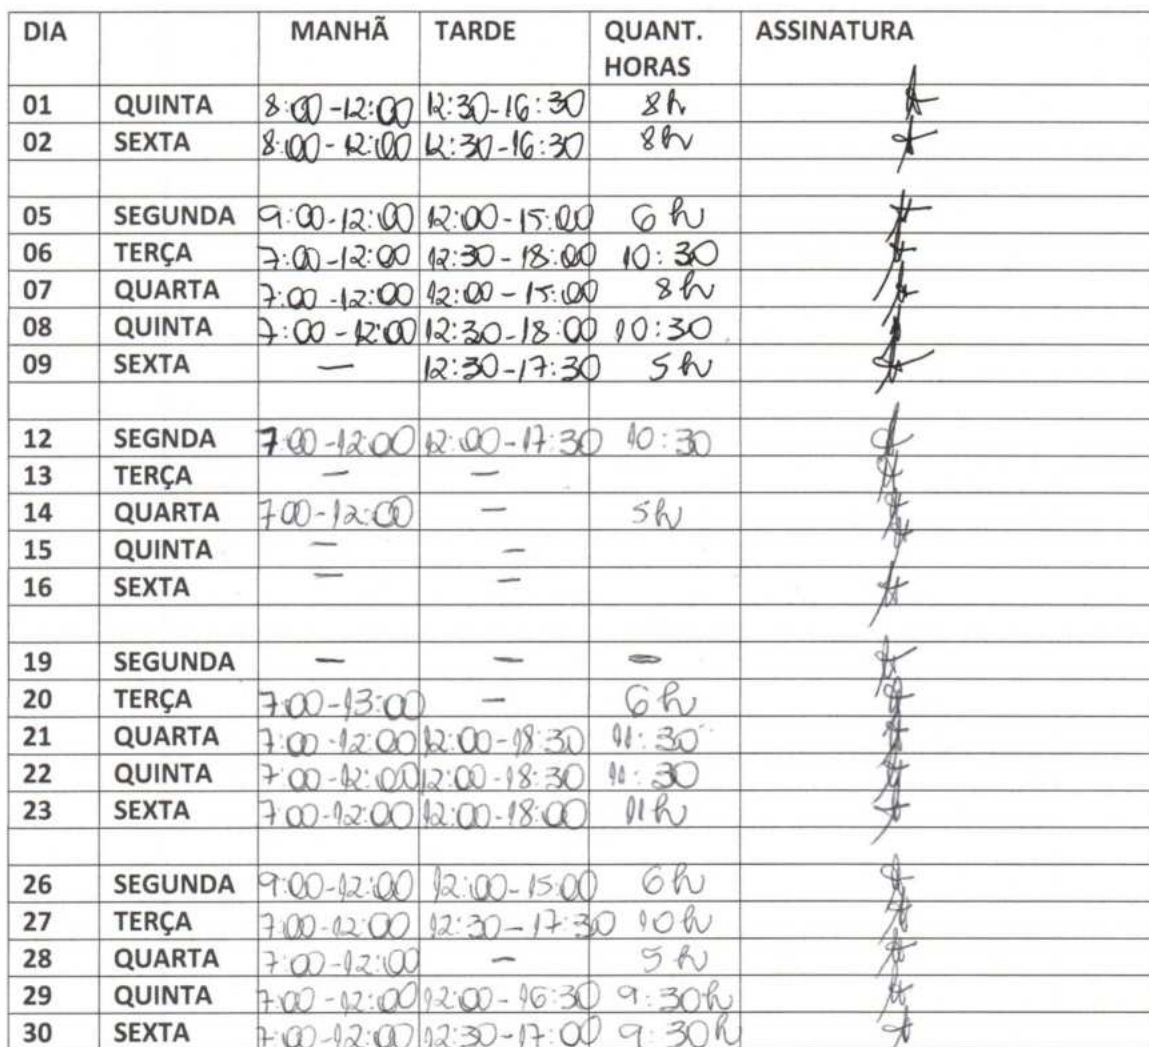 DIA MANHÃ TARDE QUANT. HORAS ASSINATURA
01 QUINTA 8:00-12:00 12:30-16:30 8h
02 SEXTA 8:00-12:00 12:30-16:30 8h
05 SEGUNDA 9:00-12:00 12:00-15:00 6h
06 TERÇA 7:00-12:00 12:30-18:00 10:30
07 QUARTA 7:00-12:00 12:00-15:00 8h
08 QUINTA 7:00-12:00 12:30-18:00 10:30
09 SEXTA — 12:30-17:30 5h
12 SEGNDA 7:00-12:00 12:00-17:30 10:30
13 TERÇA — —
14 QUARTA 7:00-12:00 — 5h
15 QUINTA — —
16 SEXTA — —
19 SEGUNDA — — —
20 TERÇA 7:00-13:00 — 6h
21 QUARTA 7:00-12:00 12:00-18:30 11:30
22 QUINTA 7:00-12:00 12:00-18:30 11:30
23 SEXTA 7:00-12:00 12:00-18:00 11h
26 SEGUNDA 9:00-12:00 12:00-15:00 6h
27 TERÇA 7:00-12:00 12:30-17:30 10h
28 QUARTA 7:00-12:00 — 5h
29 QUINTA 7:00-12:00 12:00-16:30 9:30h
30 SEXTA 7:00-12:00 12:30-17:00 9:30h